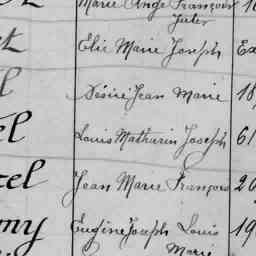 Marie Ange François
Jules
Elie Marie Joseph Ex
Désiré Jean Marie 18
el Louis Mathurin Joseph 61
cel Jean Marie François 20
my Eugène Joseph Louis 19
Marie